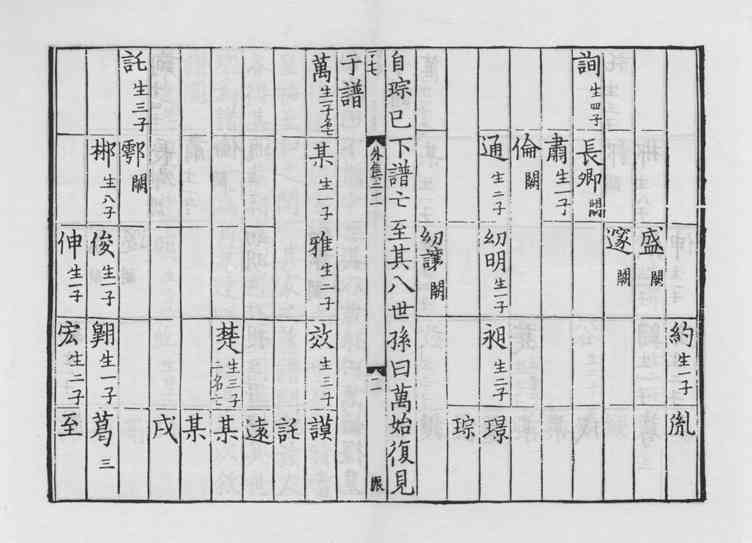 約生一子 胤
盛闕
邃闕
詢生四子 長卿闕
肅生一子
倫闕
通生二子 幼明生一子 昶生二子 璟
琮
幼讓闕
自琮已下譜亡至其八世孫曰萬始復見
二
于譜
萬生一子名亡 某生一子 雅生二子 效生三子 謨
託
遠
楚生三子二名亡 某
某
戍
託生三子 鄠闕
郴生八子 俊生一子 翱生一子 葛三
伸生一子 宏生二子 至